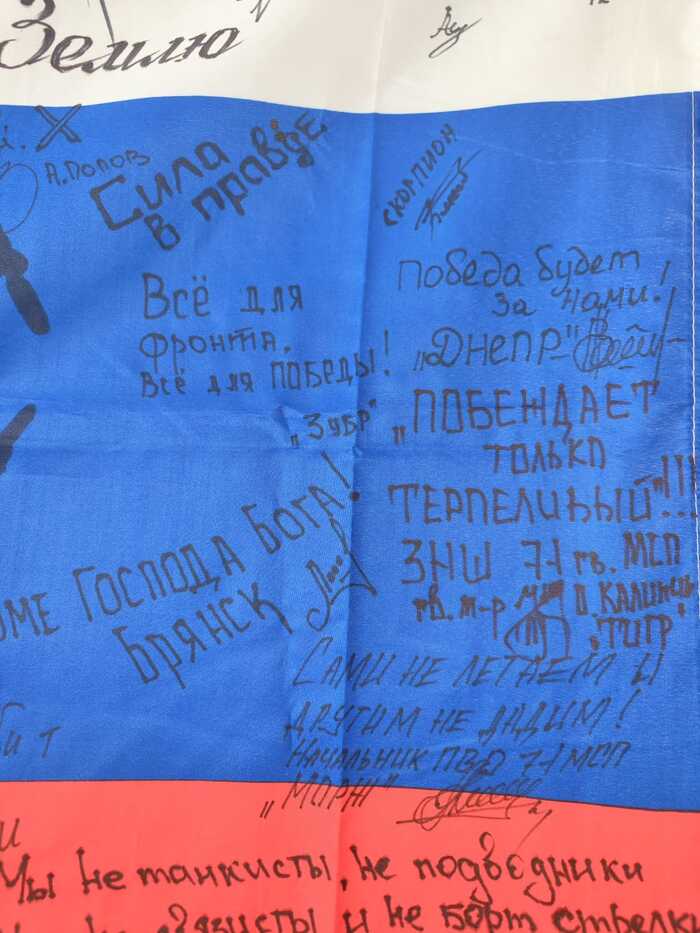 Землю
А. Попов
Сила
в правде
СКОРПИОН
Победа будет
за нами!
"ДНЕПР"
Всё для
фронта.
Всё для ПОБЕДЫ!
"Зубр"
"ПОБЕЖДАЕТ
ТОЛЬКО
ТЕРПЕЛИВЫЙ"!!!
ЗНШ 71 гв. МСП
гв. м-р
"ТИГР"
ГОСПОДА БОГА!
БРЯНСК
САМИ НЕ ЛЕТАЕМ И
ДРУГИМ НЕ ДАДИМ!
НАЧАЛЬНИК ПВО 71 МСП
"МОРЖ"
Мы не танкисты, не подводники
и не борт стрелки